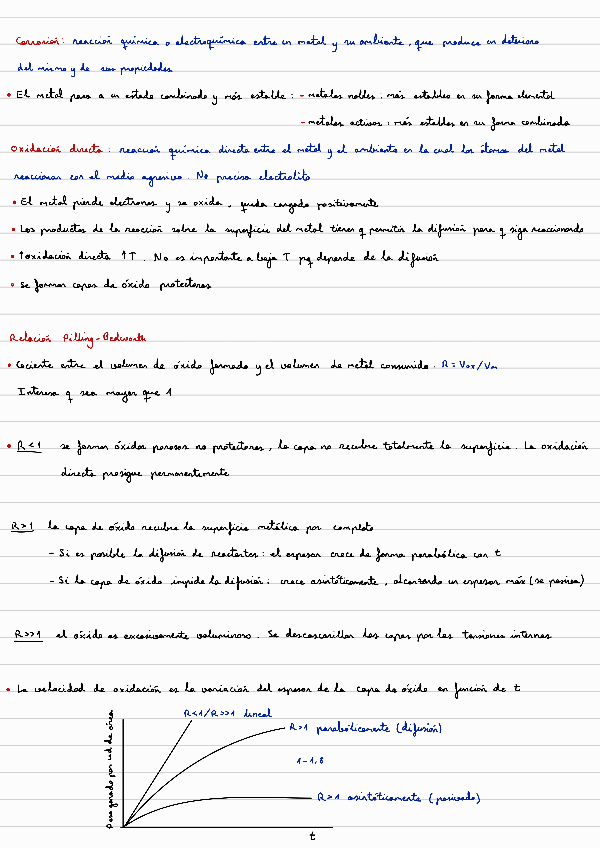 Corrosión: reacción química o electroquímica entre un metal y su ambiente, que produce un deterioro
del mismo y de sus propiedades
• El metal pasa a un estado combinado y más estable: - metales nobles: más estables en su forma elemental
- metales activos: más estables en su forma combinada
Oxidación directa: reacción química directa entre el metal y el ambiente en la cual los átomos del metal
reaccionan con el medio agresivo. No precisa electrolito
• El metal pierde electrones y se oxida, queda cargado positivamente
• Los productos de la reacción sobre la superficie del metal tienen q permitir la difusión para q siga reaccionando
• ↑oxidación directa ↑T. No es importante a baja T pq depende de la difusión
• Se forman capas de óxido protectoras
Relación Pilling-Bedworth
• Cociente entre el volumen de óxido formado y el volumen de metal consumido. R = Vox/Vm
Interesa q sea mayor que 1
• R<1 se forman óxidos porosos no protectores, la capa no recubre totalmente la superficie. La oxidación
directa prosigue permanentemente
R>1 la capa de óxido recubre la superficie metálica por completo
- Si es posible la difusión de reactantes: el espesor crece de forma parabólica con t
- Si la capa de óxido impide la difusión: crece asintóticamente, alcanzando un espesor máx (se pasiva)
R>>1 el óxido es excesivamente voluminoso. Se descascarillan las capas por las tensiones internas
• La velocidad de oxidación es la variación del espesor de la capa de óxido en función de t
R<1/R>>1 lineal
R>1 parabólicamente (difusión)
1-1,8
R>1 asintóticamente (pasivado)
Peso ganado por ud de área
t